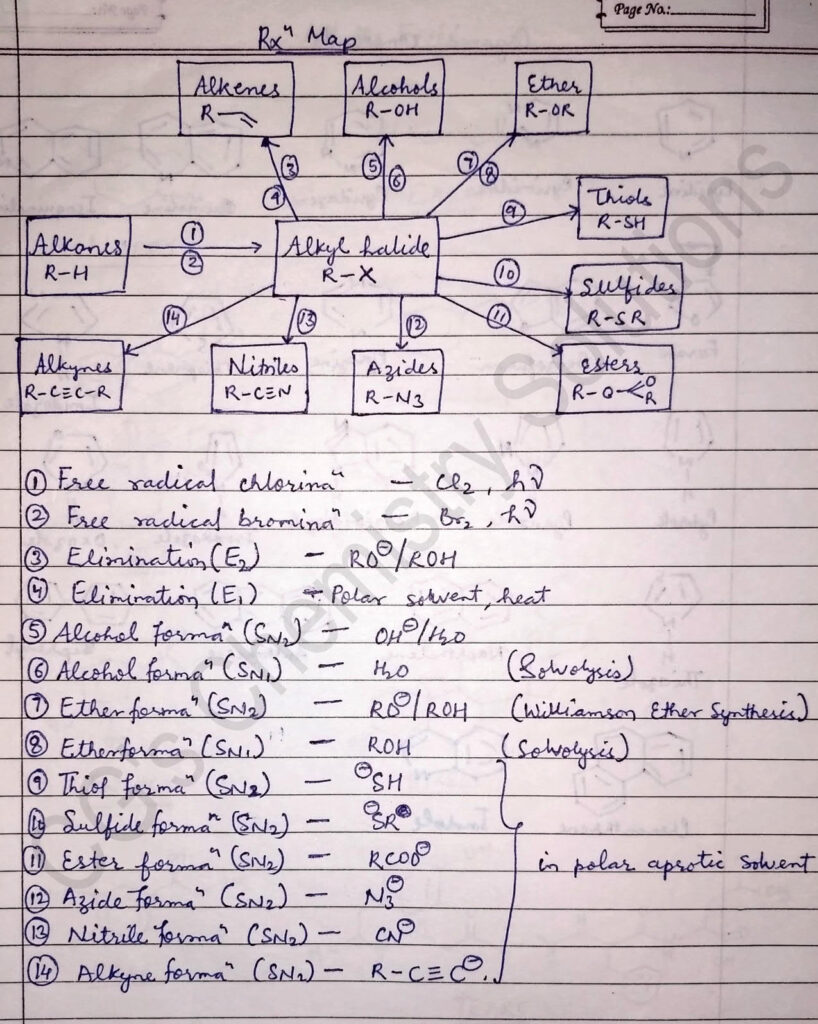 Page No.:
Rxⁿ Map
Alkenes
R
Alcohols
R-OH
Ether
R-OR
③
④
⑤
⑥
⑦
⑧
Thiols
R-SH
Alkanes
R-H
①
②
Alkyl halide
R-X
⑨
⑩
Sulfides
R-SR
⑭
⑬
⑫
⑪
Alkynes
R-C≡C-R
Nitriles
R-C≡N
Azides
R-N3
Esters
R-O-<O R
① Free radical chlorinaⁿ - Cl2, hν
② Free radical brominaⁿ - Br2, hν
③ Elimination (E2) - RO⊖/ROH
④ Elimination (E1) - Polar solvent, heat
⑤ Alcohol formaⁿ (SN2) - OH⊖/H2O
⑥ Alcohol formaⁿ (SN1) - H2O (Solvolysis)
⑦ Ether formaⁿ (SN2) - RO⊖/ROH (Williamson Ether Synthesis)
⑧ Ether formaⁿ (SN1) - ROH (Solvolysis)
⑨ Thiol formaⁿ (SN2) - ⊖SH
⑩ Sulfide formaⁿ (SN2) - ⊖SR
⑪ Ester formaⁿ (SN2) - RCOO⊖ in polar aprotic solvent
⑫ Azide formaⁿ (SN2) - N3⊖
⑬ Nitrile formaⁿ (SN2) - CN⊖
⑭ Alkyne formaⁿ (SN2) - R-C≡C⊖.
CG's Chemistry Solutions